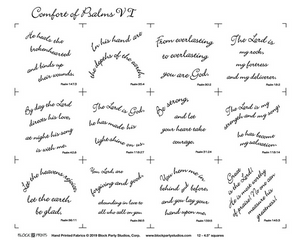 Comfort of Psalms VI
He heals the
brokenhearted
and binds up
their wounds.
Psalm 147:3
In his hand are
the depths of the earth.
Psalm 95:4
From everlasting
to everlasting
you are God.
Psalm 90:2
The Lord is
my rock,
my fortress
and my deliverer.
Psalm 18:2
By day the Lord
directs his love,
at night his song
is with me.
Psalm 42:8
The Lord is God,
he has made his
light shine on us.
Be strong,
and let
your heart take
courage.
The Lord is my
strength and my song;
he has become
my salvation.
Psalm 118:14
Let the heavens rejoice,
let the earth
be glad.
Psalm 96:11
You Lord are
forgiving and good,
abounding in love to
all who call on you.
You hem me in
behind and before,
and you lay your
hand upon me.
Great
is the Lord!
He is most worthy
of praise! No one can
measure his
greatness!
BLOCK PRINTS Hand Printed Fabrics © 2019 Block Party Studios, Corp. www.blockpartystudios.com 12 - 4.5" squares